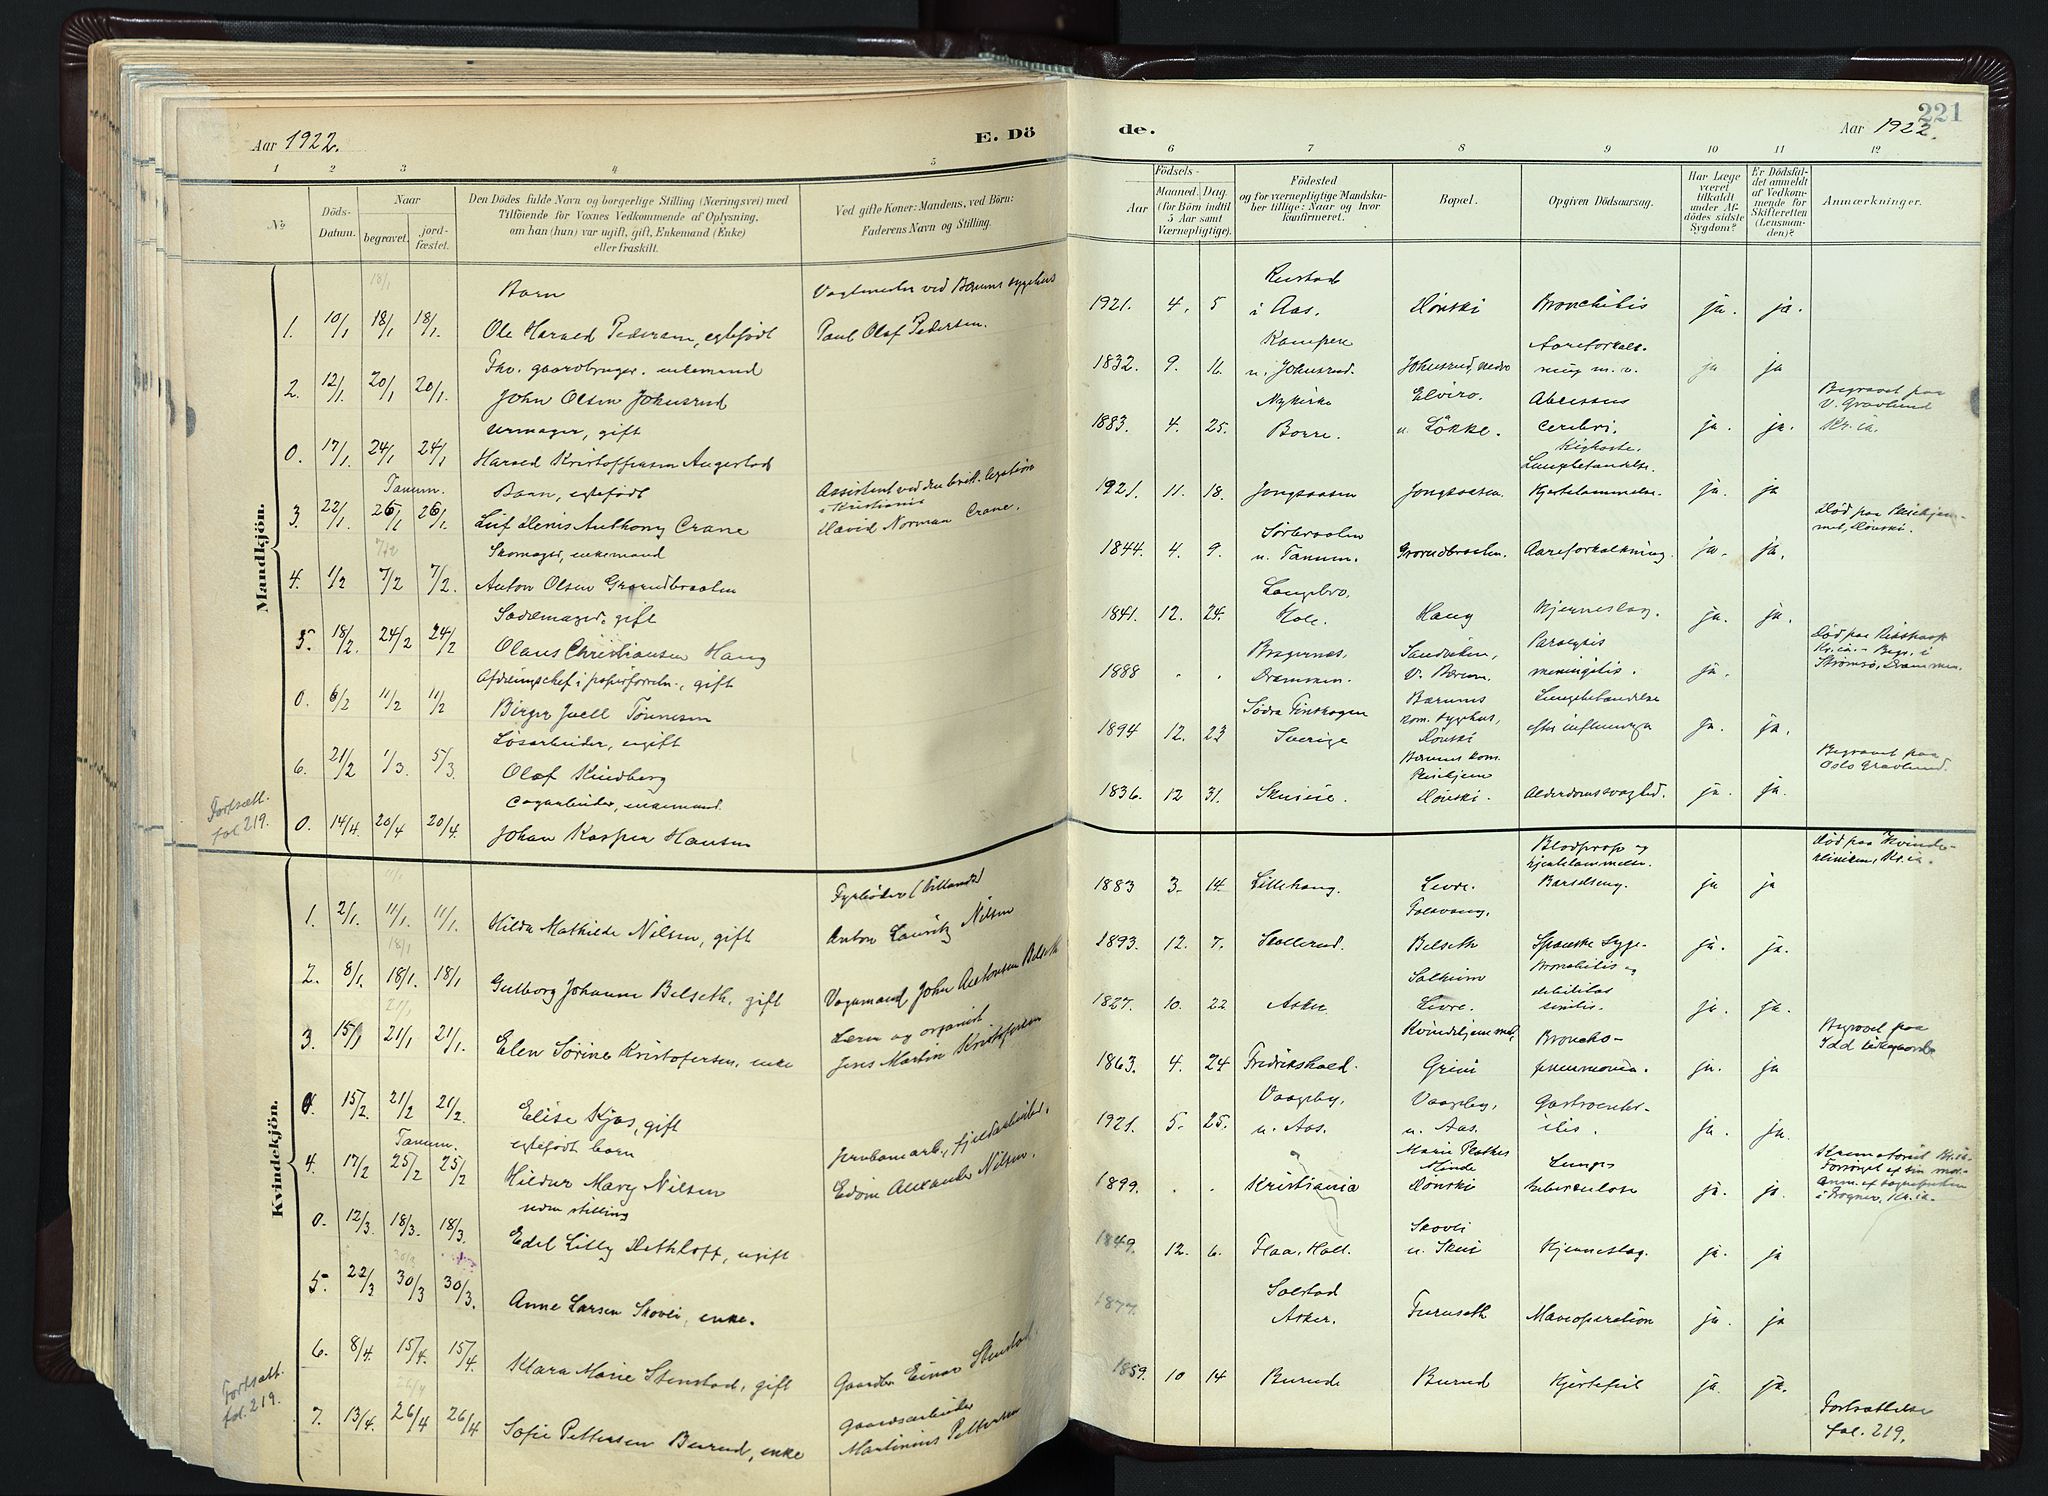 221
Aar 1922.
E. Dö
de.
Aar 1922.
1 2 3 4 5
6 7 8 9 10 11 12
No
Döds-
Datum.
Naar
begravet.
jord-
fæstet.
Den Dödes fulde Navn og borgerlige Stilling (Næringsvei) med
Tilföiende for Voxnes Vedkommende af Oplysning,
om han (hun) var ugift, gift, Enkemand (Enke)
eller fraskilt.
Ved gifte Koner: Mandens, ved Börn:
Faderens Navn og Stilling.
Födsels-
Aar
Maaned. Dag.
(for Börn indtil
5 Aar samt
Værnepligtige).
Födested
og for værnepligtige Mandska-
ber tillige: Naar og hvor
konfirmeret.
Bopæl.
Opgiven Dödsaarsag.
Har Læge
været
tilkaldt
under Af-
dödes sidste
Sygdom?
Er Dödsfal-
det anmeldt
af Vedkom-
mende for
Skifteretten
(Lensman-
den)?
Anmærkninger.
Mandkjön.
18/1
Barn
Vagtmester ved Bærums sygehus
1. 10/1 18/1 18/1. Ole Harald Pedersen, egtefödt
Paul Olaf Pedersen.
Rustad
1921. 4. 5 i Aas. Dønski Bronchitis ja. ja.
Fhv. gaardbruger, enkemand
2. 12/1. 20/1 20/1. John Olsen Johnsrud
Kampen
Aareforkalk-
1832. 9. 16. u. Johnsrud. Johnsrud, nedre ning m. v. ja ja
Urmager, gift
0. 17/1. 24/1 24/1 Harald Kristoffersen Augestad
Nykirke Elviro Abcessus
Begravet paa
V. Gravlund
1883. 4. 25. Borre. u. Løkke. cerebri. ja. ja. Kr.ia.
Tanum.
Barn, egtefödt
Assistent ved den brit. legation
i Kristiania
3. 22/1. 26/1 26/1. Leif Denis Anthony Crane
David Norman Crane.
Kighoste.
Lungebetændelse.
1921. 11. 18. Jongsaasen Jongsaasen. Hjertelammelse. ja. ja
7/2
Skomager, enkemand
4. 1/2 7/2 7/2. Anton Olsen Grorudbraaten
Død paa Pleiehjem-
met, Dønski.
Sørbraaten
1844. 4. 9. u. Tanum. Grorudbraaten. Aareforkalkning. ja. ja.
Sadelmager, gift
5. 18/2. 24/2 24/2 Olaus Christiansen Haug
Langebro,
1841. 12. 24. Hole. Haug Hjerneslag. ja. ja.
Afdelingschef i papirforretn., gift
0. 6/2 11/2 11/2 Birger Juell Tønnesen
Bragernes, Sandviken, Paralysis
1888 . . Drammen. V. Bærum. meningitis. ja.
Død paa Rikshosp.
Kr.ia. - Begr. i
Strømsø, Drammen.
Løsarbeider, ugift
6. 21/2 1/3. 5/3. Olaf Kindberg
Södra Finskogen Bærums Lungebetændelse
1894 12. 23 Sverige kom. sygehus, efter influenza ja. ja.
Dønski
Cagarbeider, enkemand.
0. 14/4. 20/4 20/4. Johan Kasper Hansen
Bærums kom.
Pleiehjem
1836. 12 31. Skuie. Dønski. Alderdomssvaghed. ja. ja.
Begravet paa
Oslo Gravlund.
Fortsætt.
fol. 219.
Kvindekjön.
11/1
Fyrbøder
1. 2/1. 11/1. 11/1. Hilda Mathilde Nilsen, gift
Anton Lauritz Nilsen
Blodprop og
hjertelammelse.
1883 3. 14. Lillehaug. Levre. Barselseng. ja ja
Død paa Kvinde-
kliniken, Kr.ia.
18/1
2. 8/1. 18/1. 18/1 Gulborg Johanne Belseth, gift
Vognmand John Antonsen Belseth
Falavang,
1893. 12. 7. Skollerud. Belseth Spanske syge- ja. ja.
21/1
Lærer og organist
3. 15/1 21/1 21/1. Elen Sørine Kristofersen, enke
Jens Martin Kristofersen
Solheim Bronchitis og
debilitas
1827. 10. 22 Asker Levre. senilis. ja. ja.
0. 15/2. 21/2 21/2. Elise Kjos, gift
Kvindehjemmet, Broncho-
1863. 4. 24 Fredrikshald. Grini pneumonia. ja. ja
Begravet paa
Idd kirkegaard
Tanum.
egtefödt barn
4. 17/2 25/2 25/2 Hildur Mary Nilsen
Edvin Alexander Nilsen.
Vaageby, Vaageby, Gastroenter-
1921. 5. 25. u. Aas. u. Aas. itis. ja. ja.
uden stilling
0. 12/3. 18/3. 18/3. Edel Lilly Dethloff, ugift
Marie Plathes
Minde Lunge-
1899. . . Kristiania Dønski tuberkulose ja. ja.
Krematoriet Kr.ia
i Frogner, Kr.ia.
30/3
5. 22/3 30/3 30/3. Anne Larsen Skovli, enke.
Skovli
1849. 12. 6. Flaa, Hall. u. Skui Hjerneslag. ja. ja
6. 8/4. 15/4. 15/4. Klara Marie Stenstad, gift
Gaardbr. Einar Stenstad.
Solstad
1877. Asker. Furuseth Maveoperation ja. ja
26/4
Gaardsarbeider
7. 13/4. 26/4 26/4 Sofie Pettersen Burud, enke
Martinius Pettersen
1859. 10 14 Burud Burud Hjertefeil ja. ja.
Fortsætt.
fol. 219.
Fortsættelse
fol. 219.